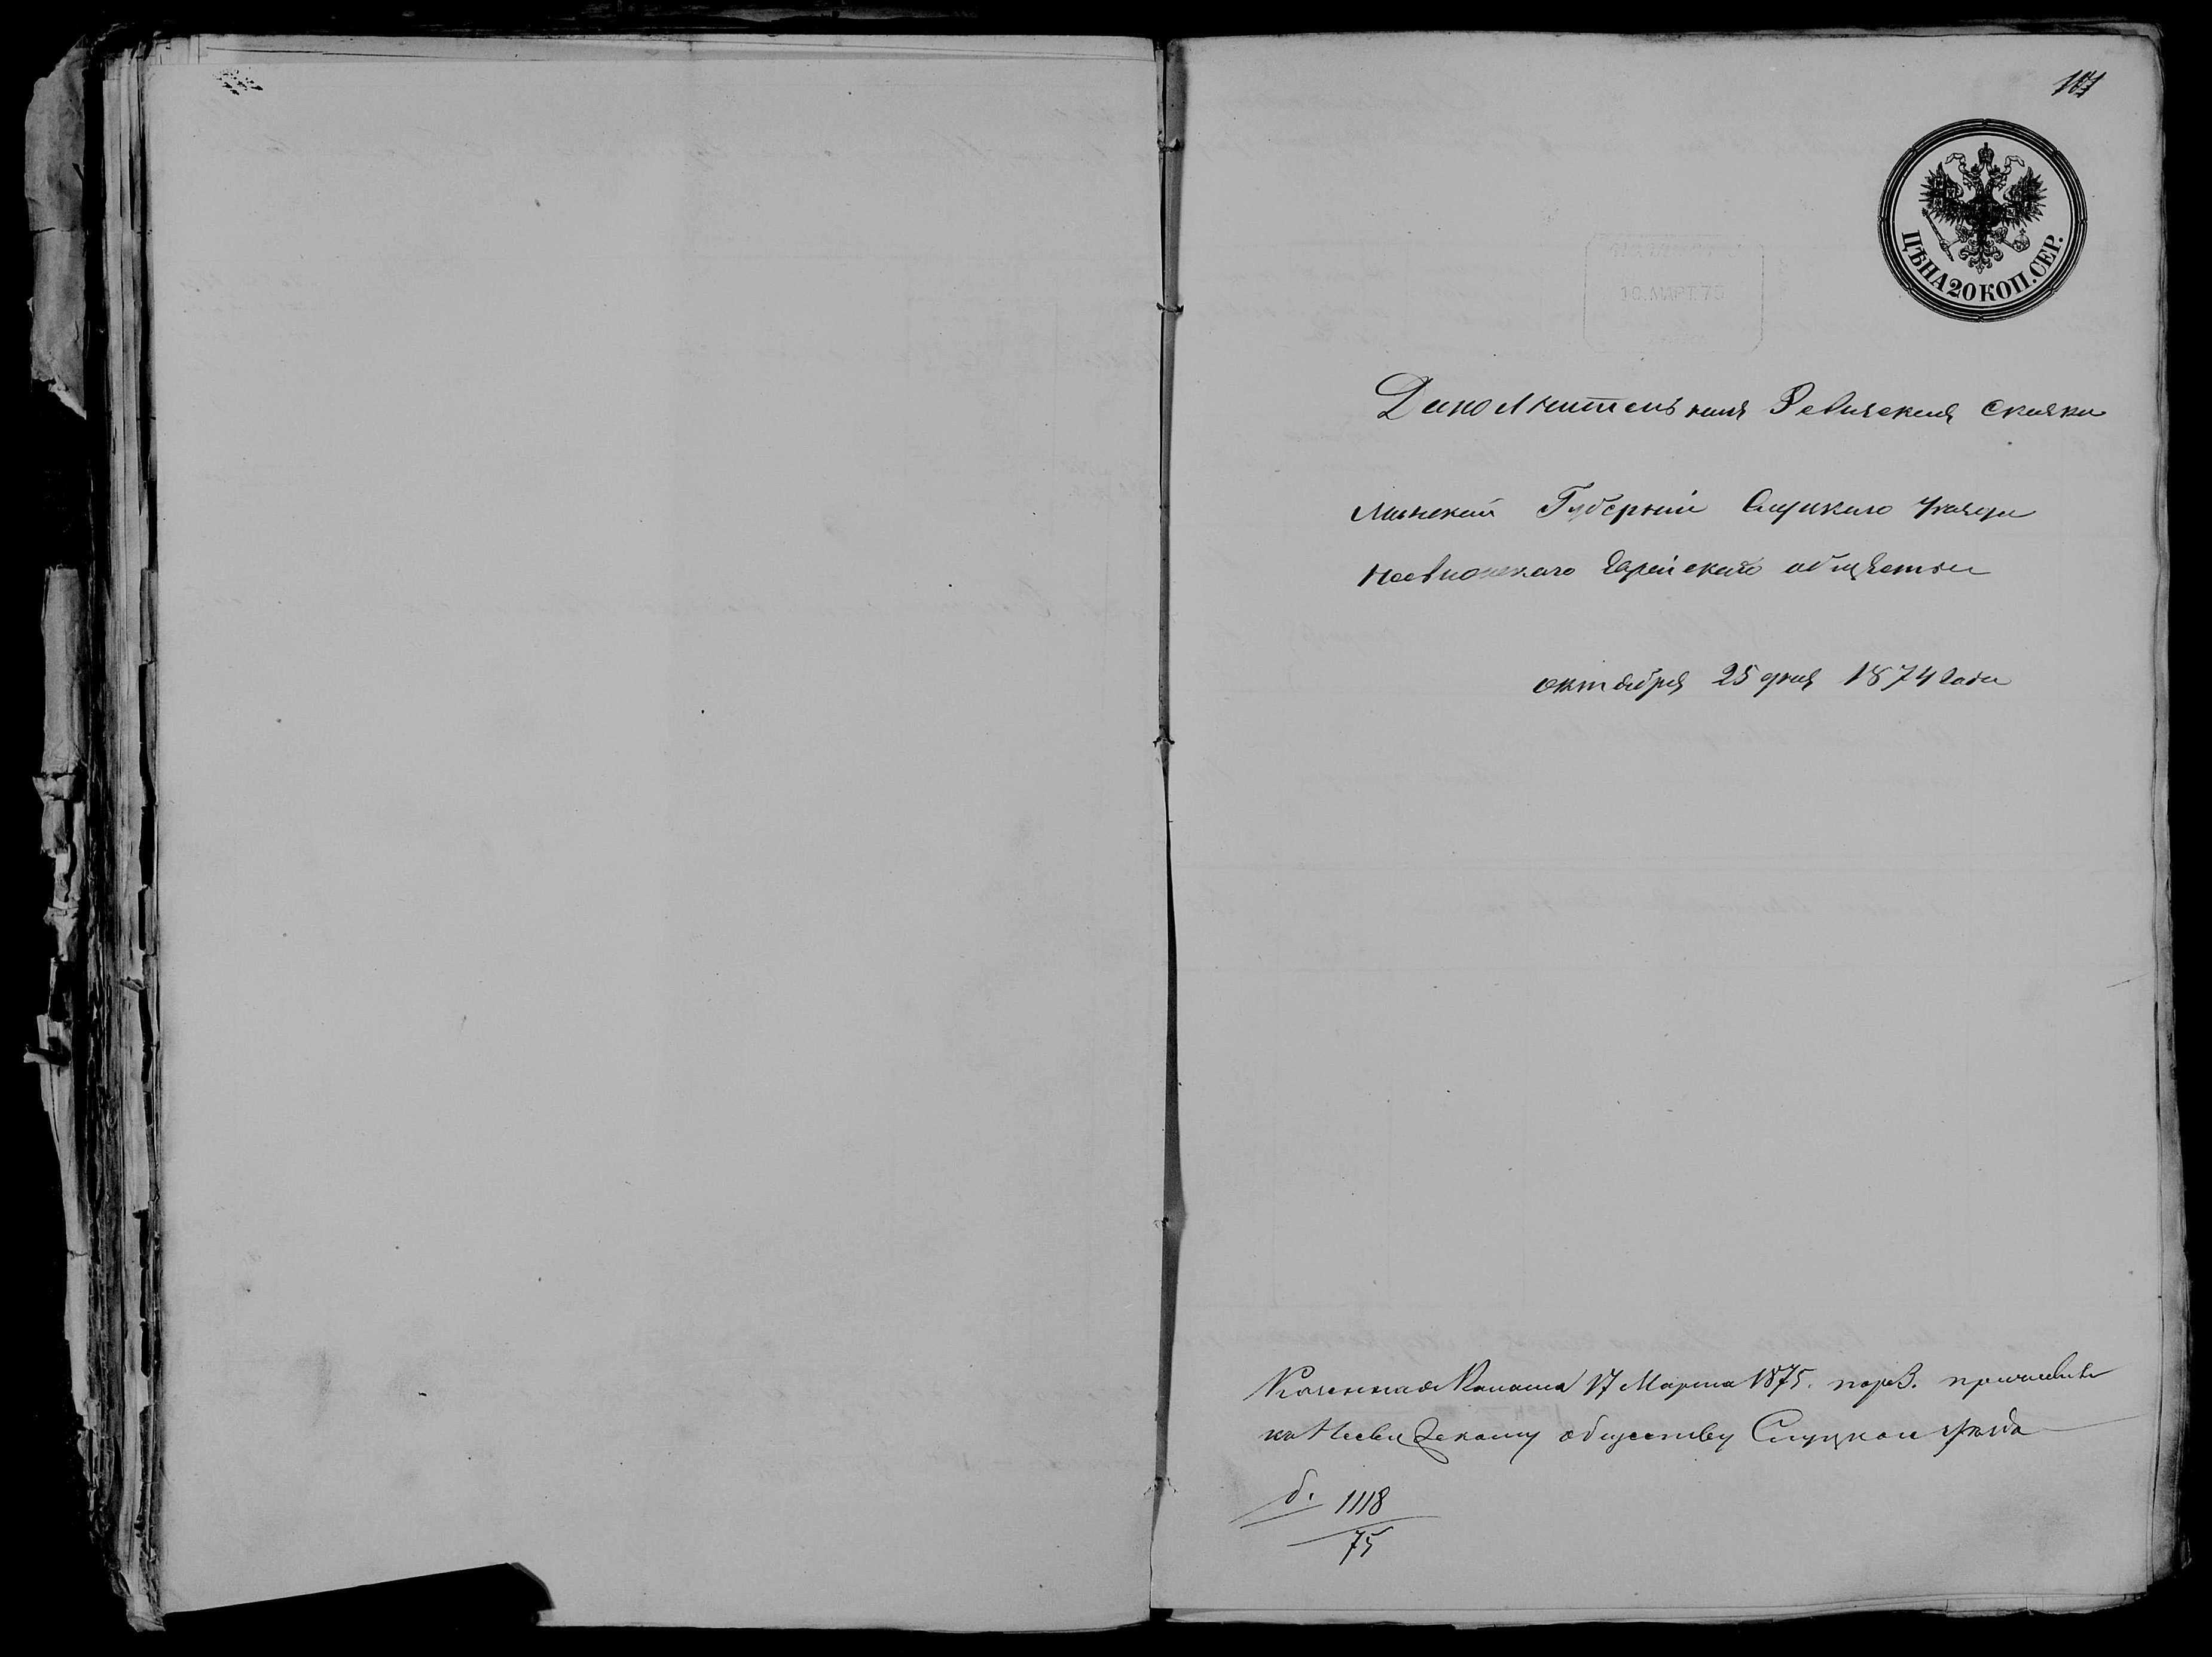 ЦѢНА 20 КОП. СЕР.
10.МАРТ.75
Дополнительная Ревизская Сказка
Минской Губерніи Слуцкаго Уѣзда
Несвижскаго Еврейскаго общества
октября 25 дня 1874 года
Казенная Палата 17 Марта 1875.
къ Несвижскому обществу Слуцкаго уѣзда
б. 1118
75